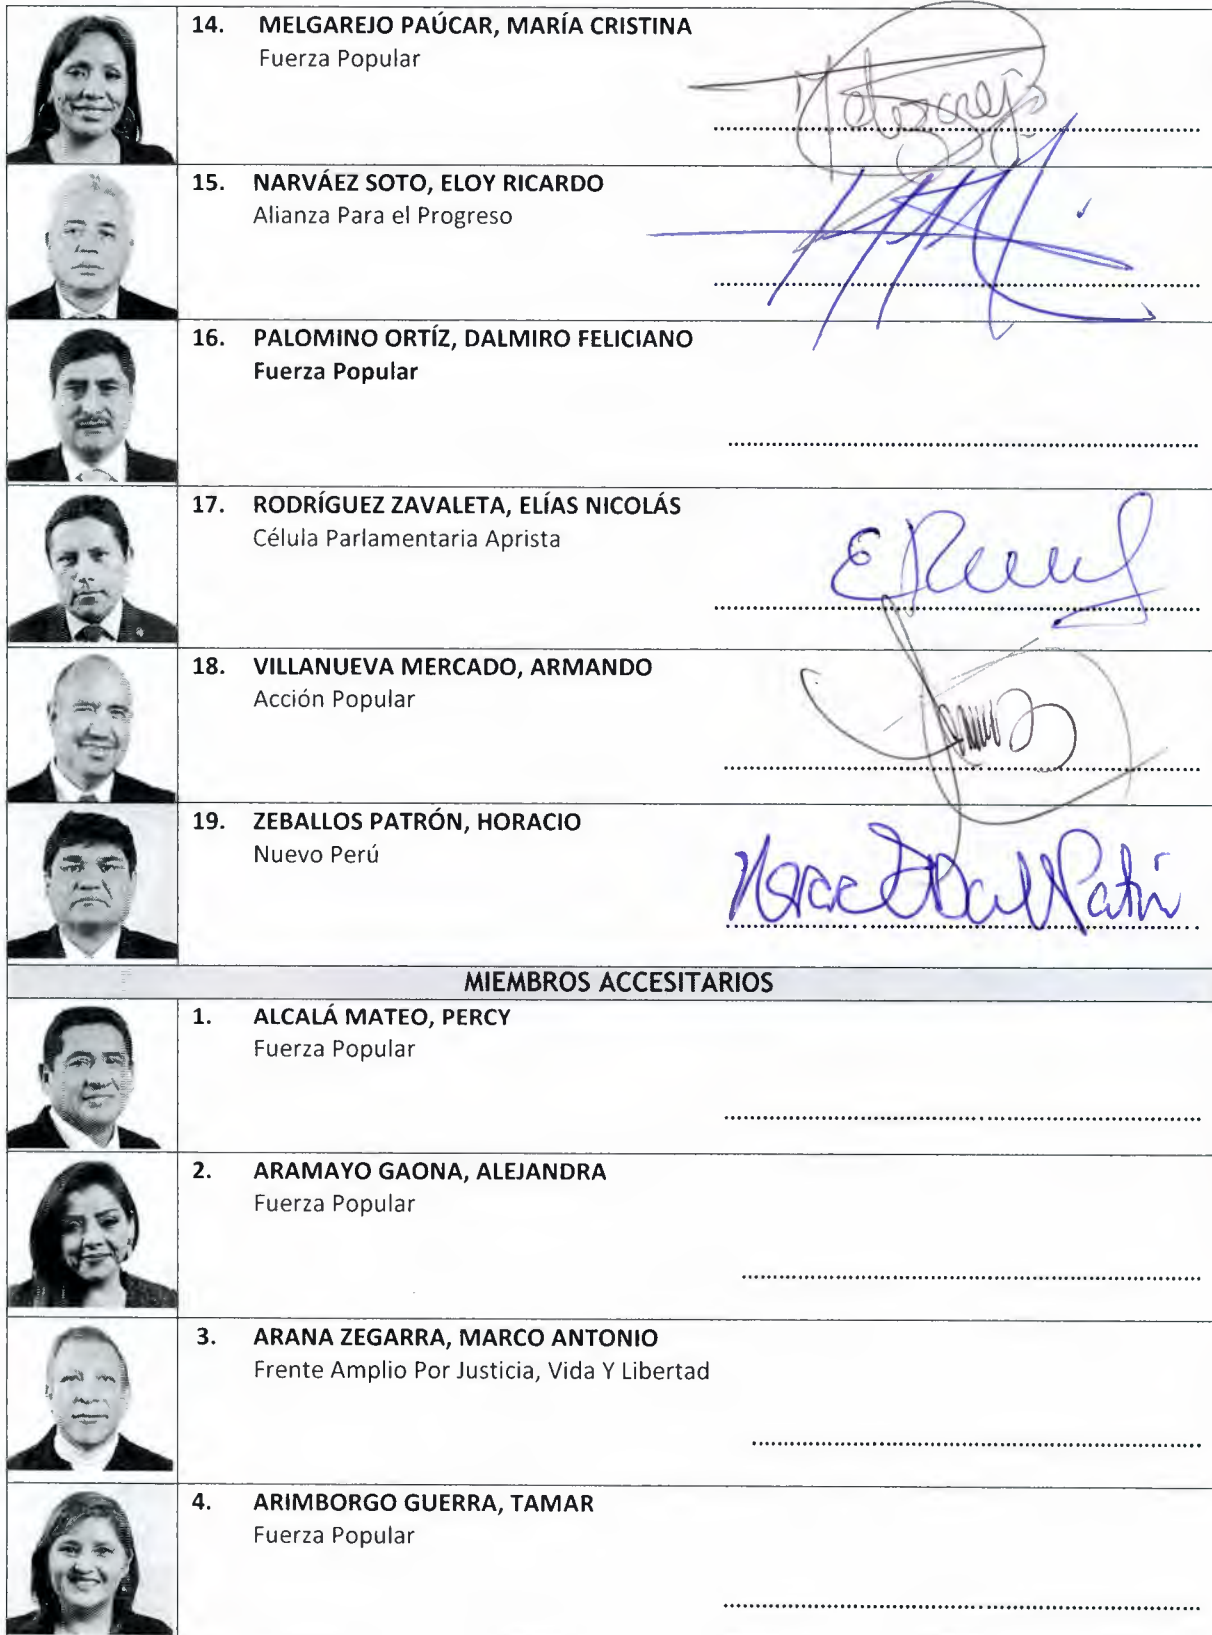 14. MELGAREJO PAÚCAR, MARÍA CRISTINA
Fuerza Popular
15. NARVÁEZ SOTO, ELOY RICARDO
Alianza Para el Progreso
16. PALOMINO ORTÍZ, DALMIRO FELICIANO
Fuerza Popular
17. RODRÍGUEZ ZAVALETA, ELÍAS NICOLÁS
Célula Parlamentaria Aprista
18. VILLANUEVA MERCADO, ARMANDO
Acción Popular
19. ZEBALLOS PATRÓN, HORACIO
Nuevo Perú
MIEMBROS ACCESITARIOS
1. ALCALÁ MATEO, PERCY
Fuerza Popular
2. ARAMAYO GAONA, ALEJANDRA
Fuerza Popular
3. ARANA ZEGARRA, MARCO ANTONIO
Frente Amplio Por Justicia, Vida Y Libertad
4. ARIMBORGO GUERRA, TAMAR
Fuerza Popular